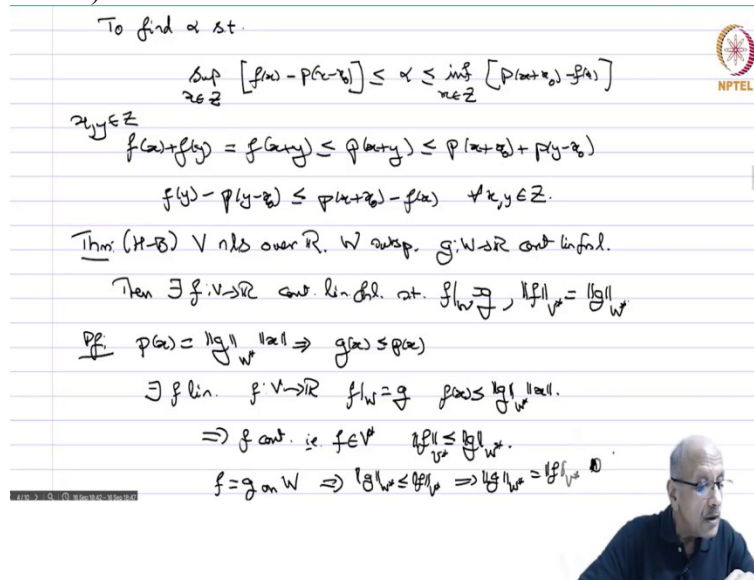 To find α s.t.
Sup x∈Z [f(x) - p(x-x₀)] ≤ α ≤ inf x∈Z [p(x+x₀) - f(x)]
NPTEL
x,y∈Z
f(x)+f(y) = f(x+y) ≤ p(x+y) ≤ p(x+x₀) + p(y-x₀)
f(y) - p(y-x₀) ≤ p(x+x₀) - f(x) ∀x,y∈Z.
Thm: (H-B) V nls over ℝ. W subsp. g:W→ℝ cont lin fnl.
Then ∃ f:V→ℝ cont. lin. fnl. st. f|_W = g, ||f||_V* = ||g||_W*
Pf: p(x) = ||g||_W* ||x|| ⇒ g(x) ≤ p(x)
∃ f lin. f:V→ℝ f|_W = g f(x) ≤ ||g||_W* ||x||.
⇒ f cont. ie. f∈V* ||f||_V* ≤ ||g||_W*.
f = g on W ⇒ ||g||_W* ≤ ||f||_V* ⇒ ||g||_W* = ||f||_V*